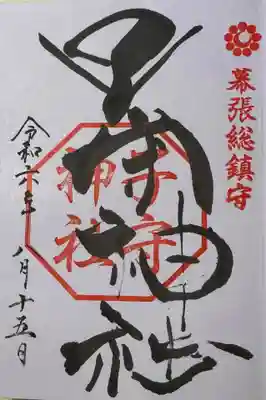 幕張総鎮守
子守神社
子守
神社
令和六年 八月十五日